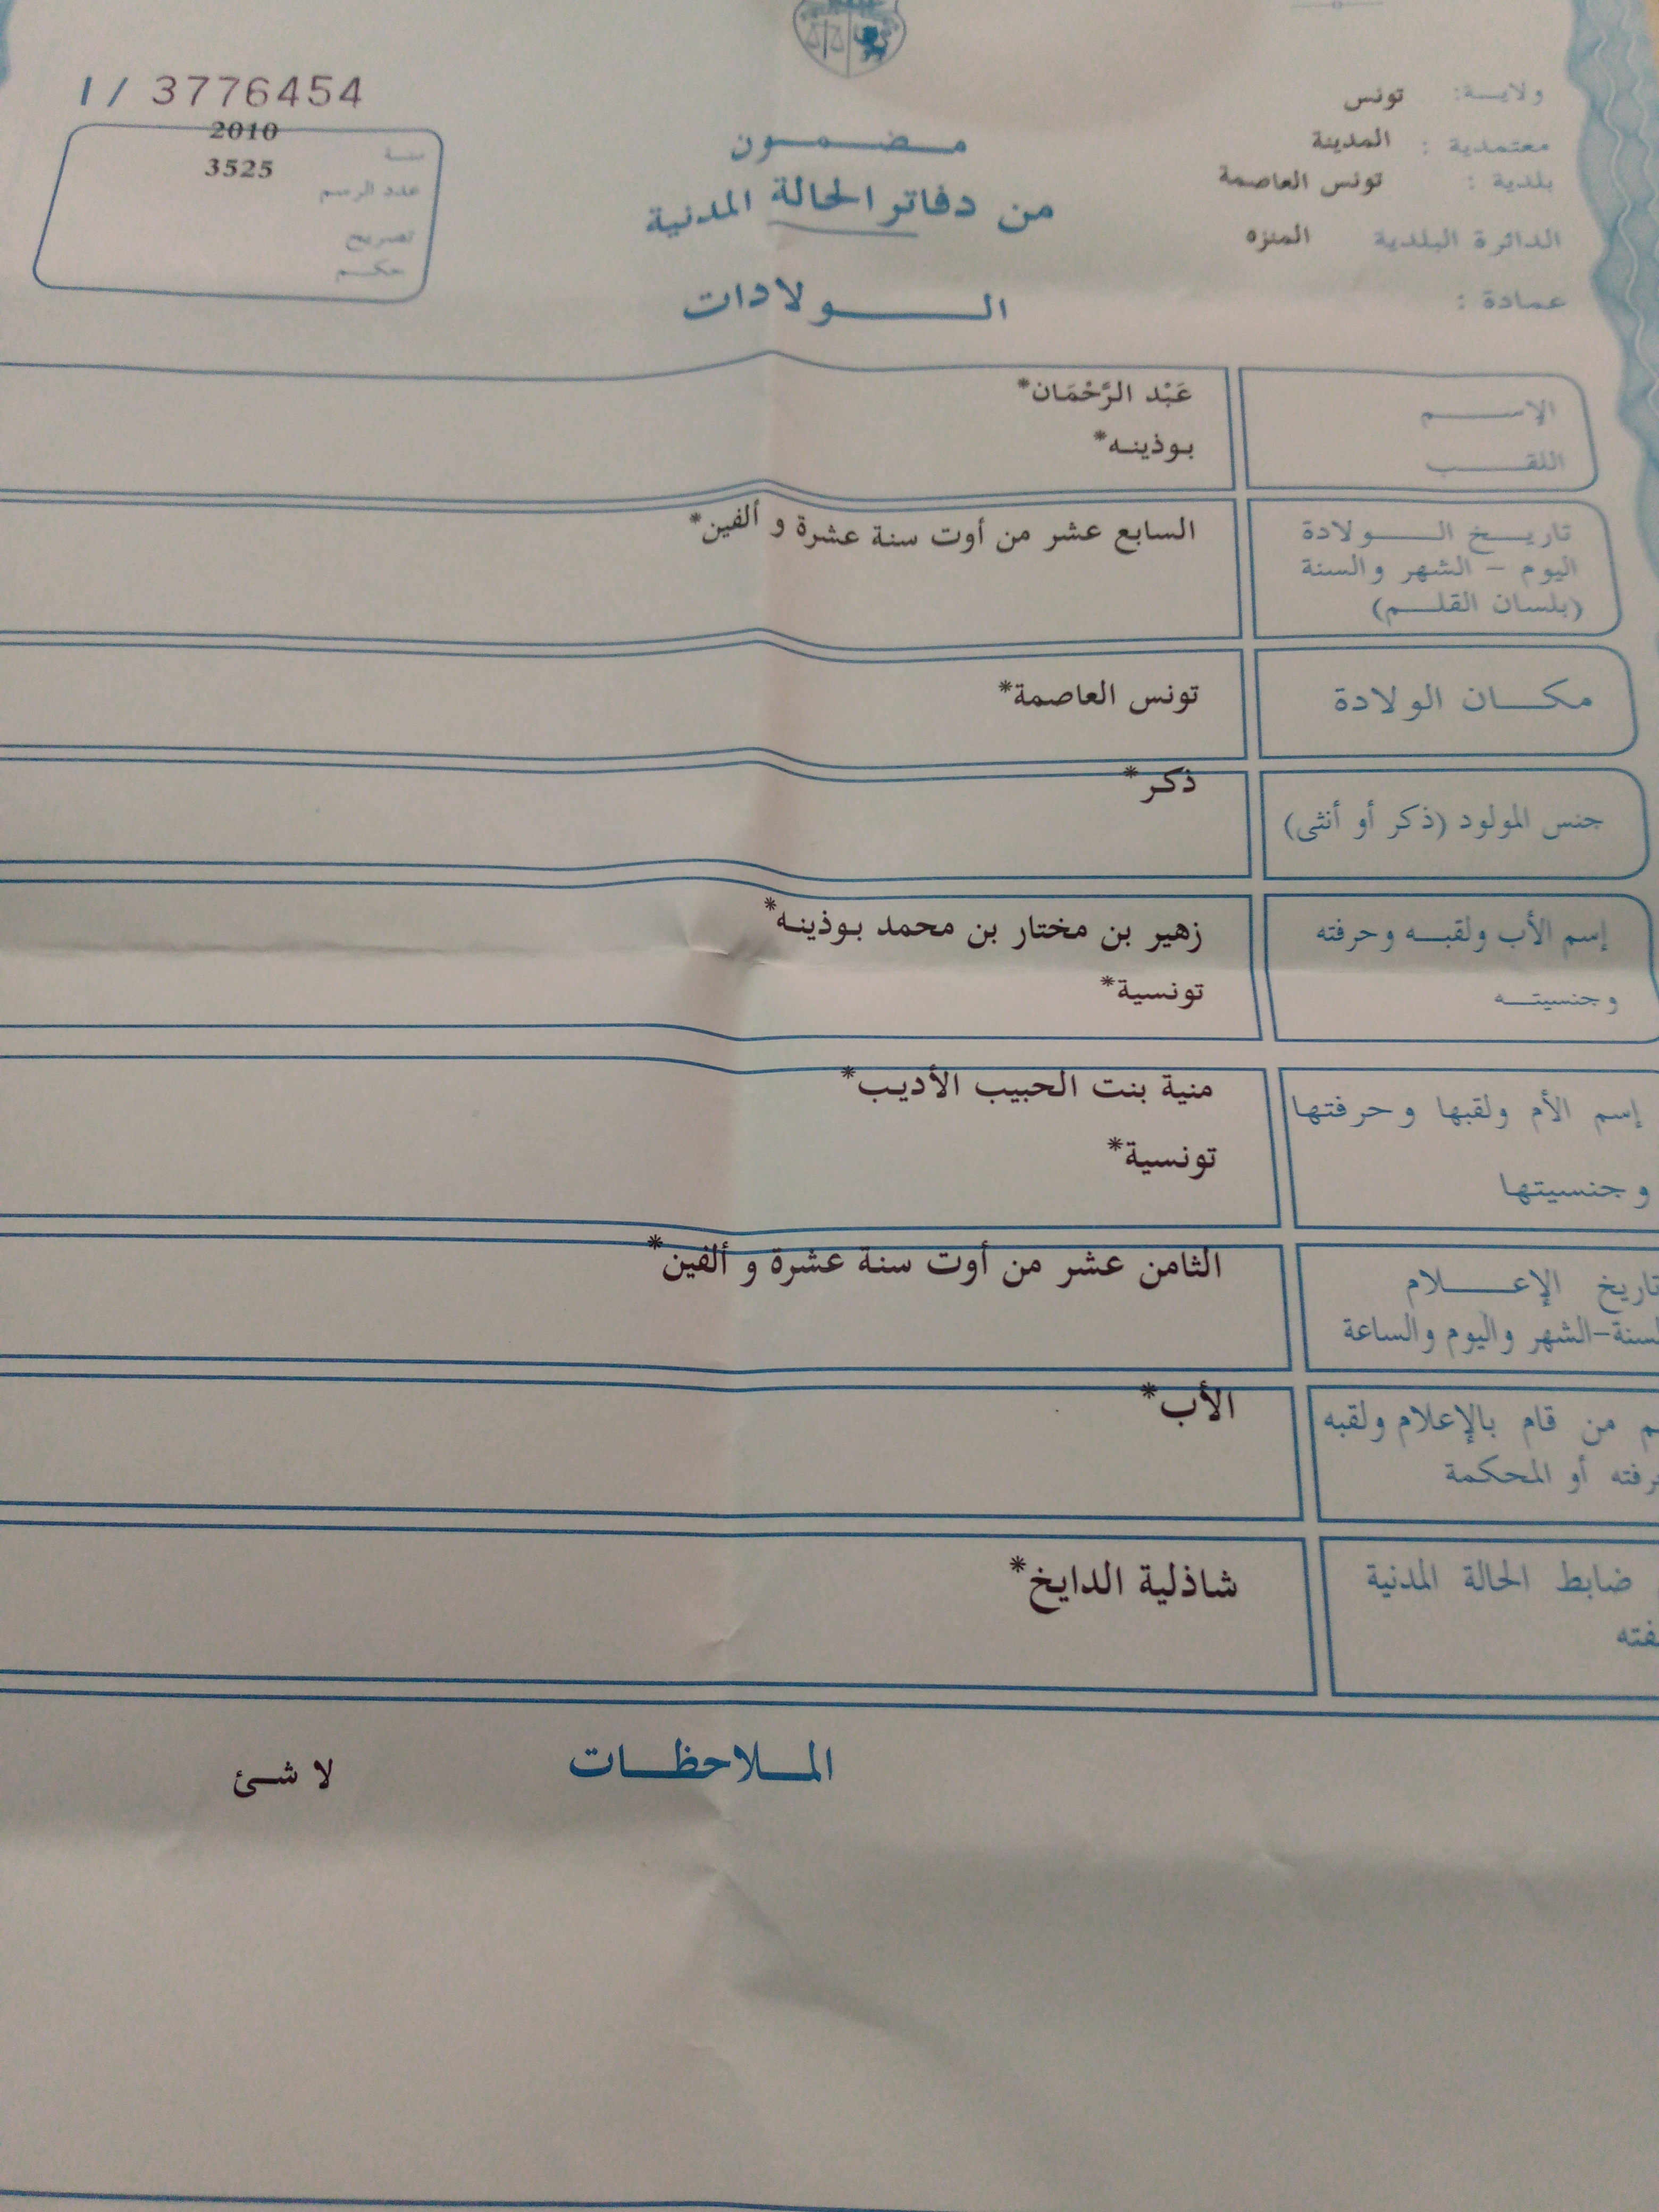 ولايـــة: تونس
معتمدية : المدينة
بلدية : تونس العاصمة
الدائرة البلدية المنزه
عمادة :
مـــضـــمـــون
من دفاتر الحالة المدنية
الـــولادات
I / 3776454
سنـــة 2010
عدد الرسم 3525
تصريح
حكـــم
الإســـم عَبْد الرَّحْمَان*
اللقـــب بوذينه*
تاريـــخ الـــولادة السابع عشر من أوت سنة عشرة و ألفين*
اليوم – الشهر والسنة
(بلسان القلـــم)
مكـــان الولادة تونس العاصمة*
جنس المولود (ذكر أو أنثى) ذكر*
إسم الأب ولقبـــه وحرفته زهير بن مختار بن محمد بوذينه*
وجنسيتـــه تونسية*
إسم الأم ولقبها وحرفتها منية بنت الحبيب الأديب*
وجنسيتها تونسية*
تاريخ الإعـــلام الثامن عشر من أوت سنة عشرة و ألفين*
لسنة-الشهر واليوم والساعة
م من قام بالإعلام ولقبه الأب*
رفته أو المحكمة
ضابط الحالة المدنية شاذلية الدايخ*
فته
المـــلاحظـــات لا شـئ